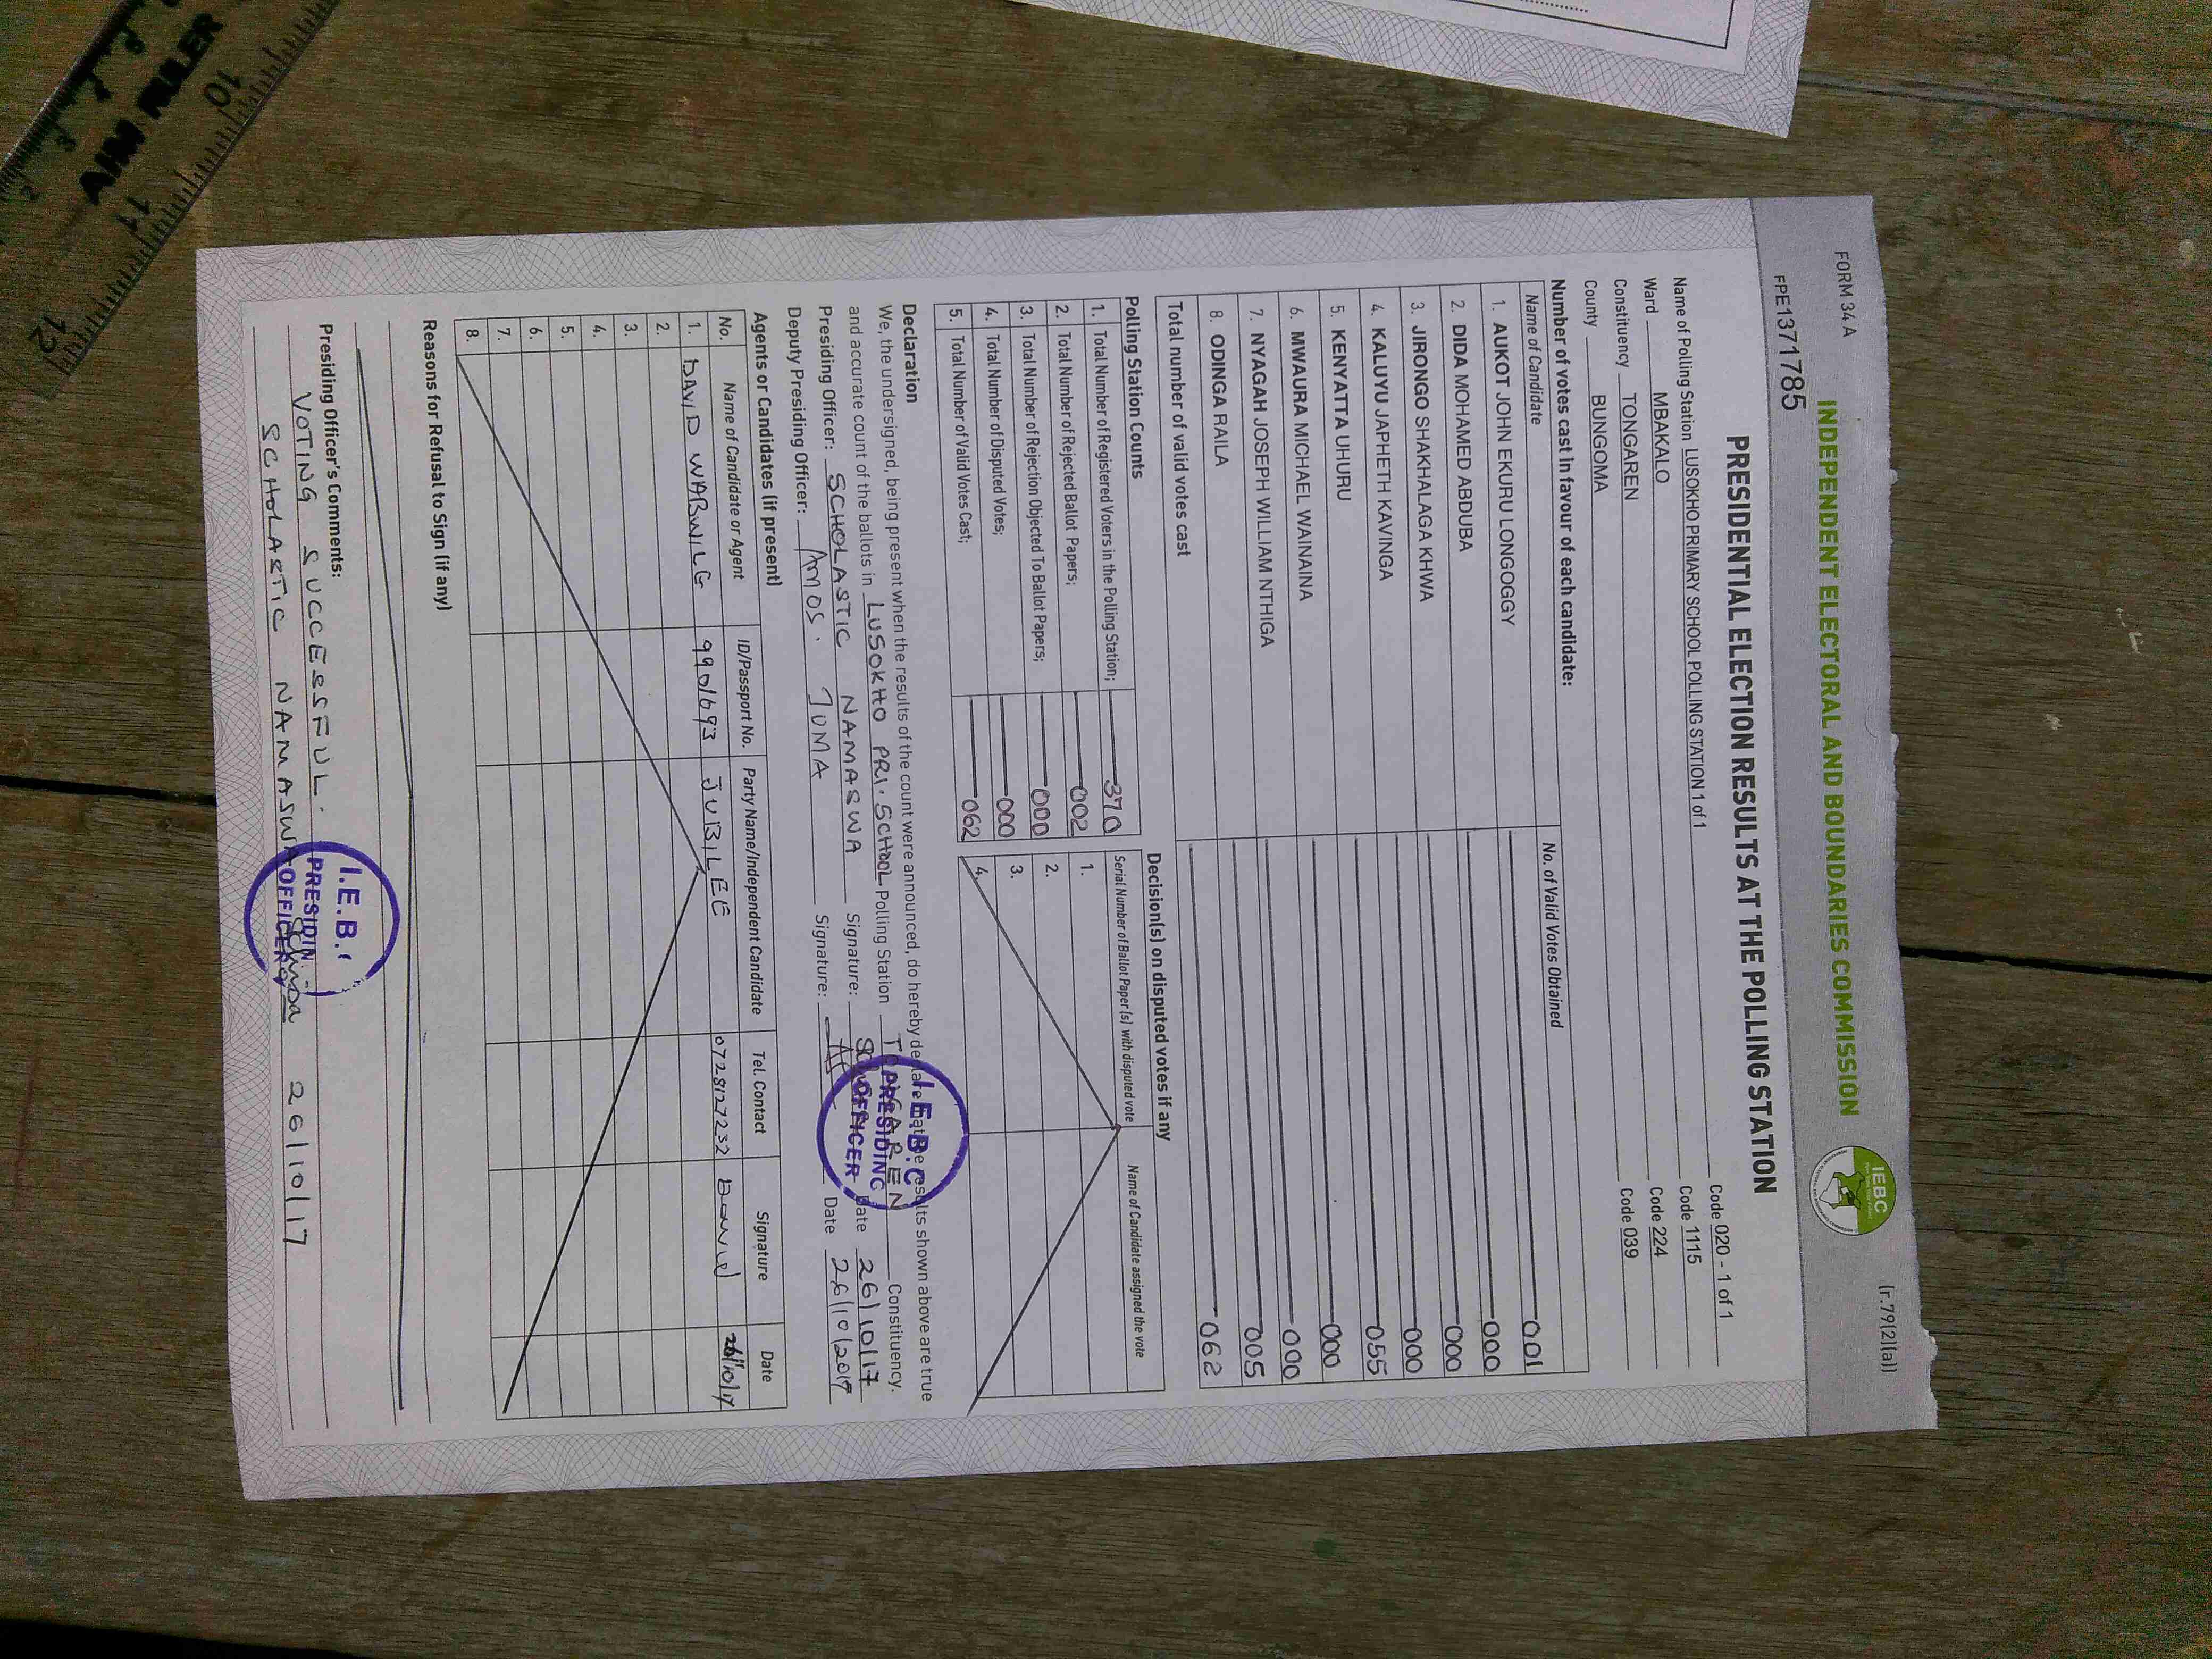 FORM 34 A
(r.79(2)(a))
INDEPENDENT ELECTORAL AND BOUNDARIES COMMISSION
IEBC
FPE1371785
PRESIDENTIAL ELECTION RESULTS AT THE POLLING STATION
Name of Polling Station LUSOKHO PRIMARY SCHOOL POLLING STATION 1 of 1 Code 020 - 1 of 1
Ward MBAKALO Code 1115
Constituency TONGAREN Code 224
County BUNGOMA Code 039
Number of votes cast in favour of each candidate:
Name of Candidate No. of Valid Votes Obtained
1. AUKOT JOHN EKURU LONGOGGY 001
2. DIDA MOHAMED ABDUBA 000
3. JIRONGO SHAKHALAGA KHWA 000
4. KALUYU JAPHETH KAVINGA 000
5. KENYATTA UHURU 055
6. MWAURA MICHAEL WAINAINA 000
7. NYAGAH JOSEPH WILLIAM NTHIGA 000
8. ODINGA RAILA 005
Total number of valid votes cast 062
Polling Station Counts
1. Total Number of Registered Voters in the Polling Station; 370
2. Total Number of Rejected Ballot Papers; 002
3. Total Number of Rejection Objected To Ballot Papers; 000
4. Total Number of Disputed Votes; 000
5. Total Number of Valid Votes Cast; 062
Decision(s) on disputed votes if any
Serial Number of Ballot Paper (s) with disputed vote Name of Candidate assigned the vote
1.
2.
3.
4.
Declaration
We, the undersigned, being present when the results of the count were announced, do hereby declare that the results shown above are true
and accurate count of the ballots in LUSOKHO PRI. SCHOOL Polling Station TONGAREN Constituency.
Presiding Officer: SCHOLASTIC NAMASWA Signature: Date 26/10/17
Deputy Presiding Officer: AMOS. JUMA Signature: Date 26/10/2017
I.E.B.C
PRESIDING
OFFICER
Agents or Candidates (if present)
No. Name of Candidate or Agent ID/Passport No. Party Name/Independent Candidate Tel. Contact Signature Date
1. DAVID 9901693 JUBILEE 0728127232 David 26/10/17
2.
3.
4.
5.
6.
7.
8.
Reasons for Refusal to Sign (if any)
Presiding Officer's Comments:
VOTING SUCCESSFUL.
SCHOLASTIC NAMASWA 26/10/17
I.E.B.C
PRESIDING
OFFICER
AIM RULER
10
11
12